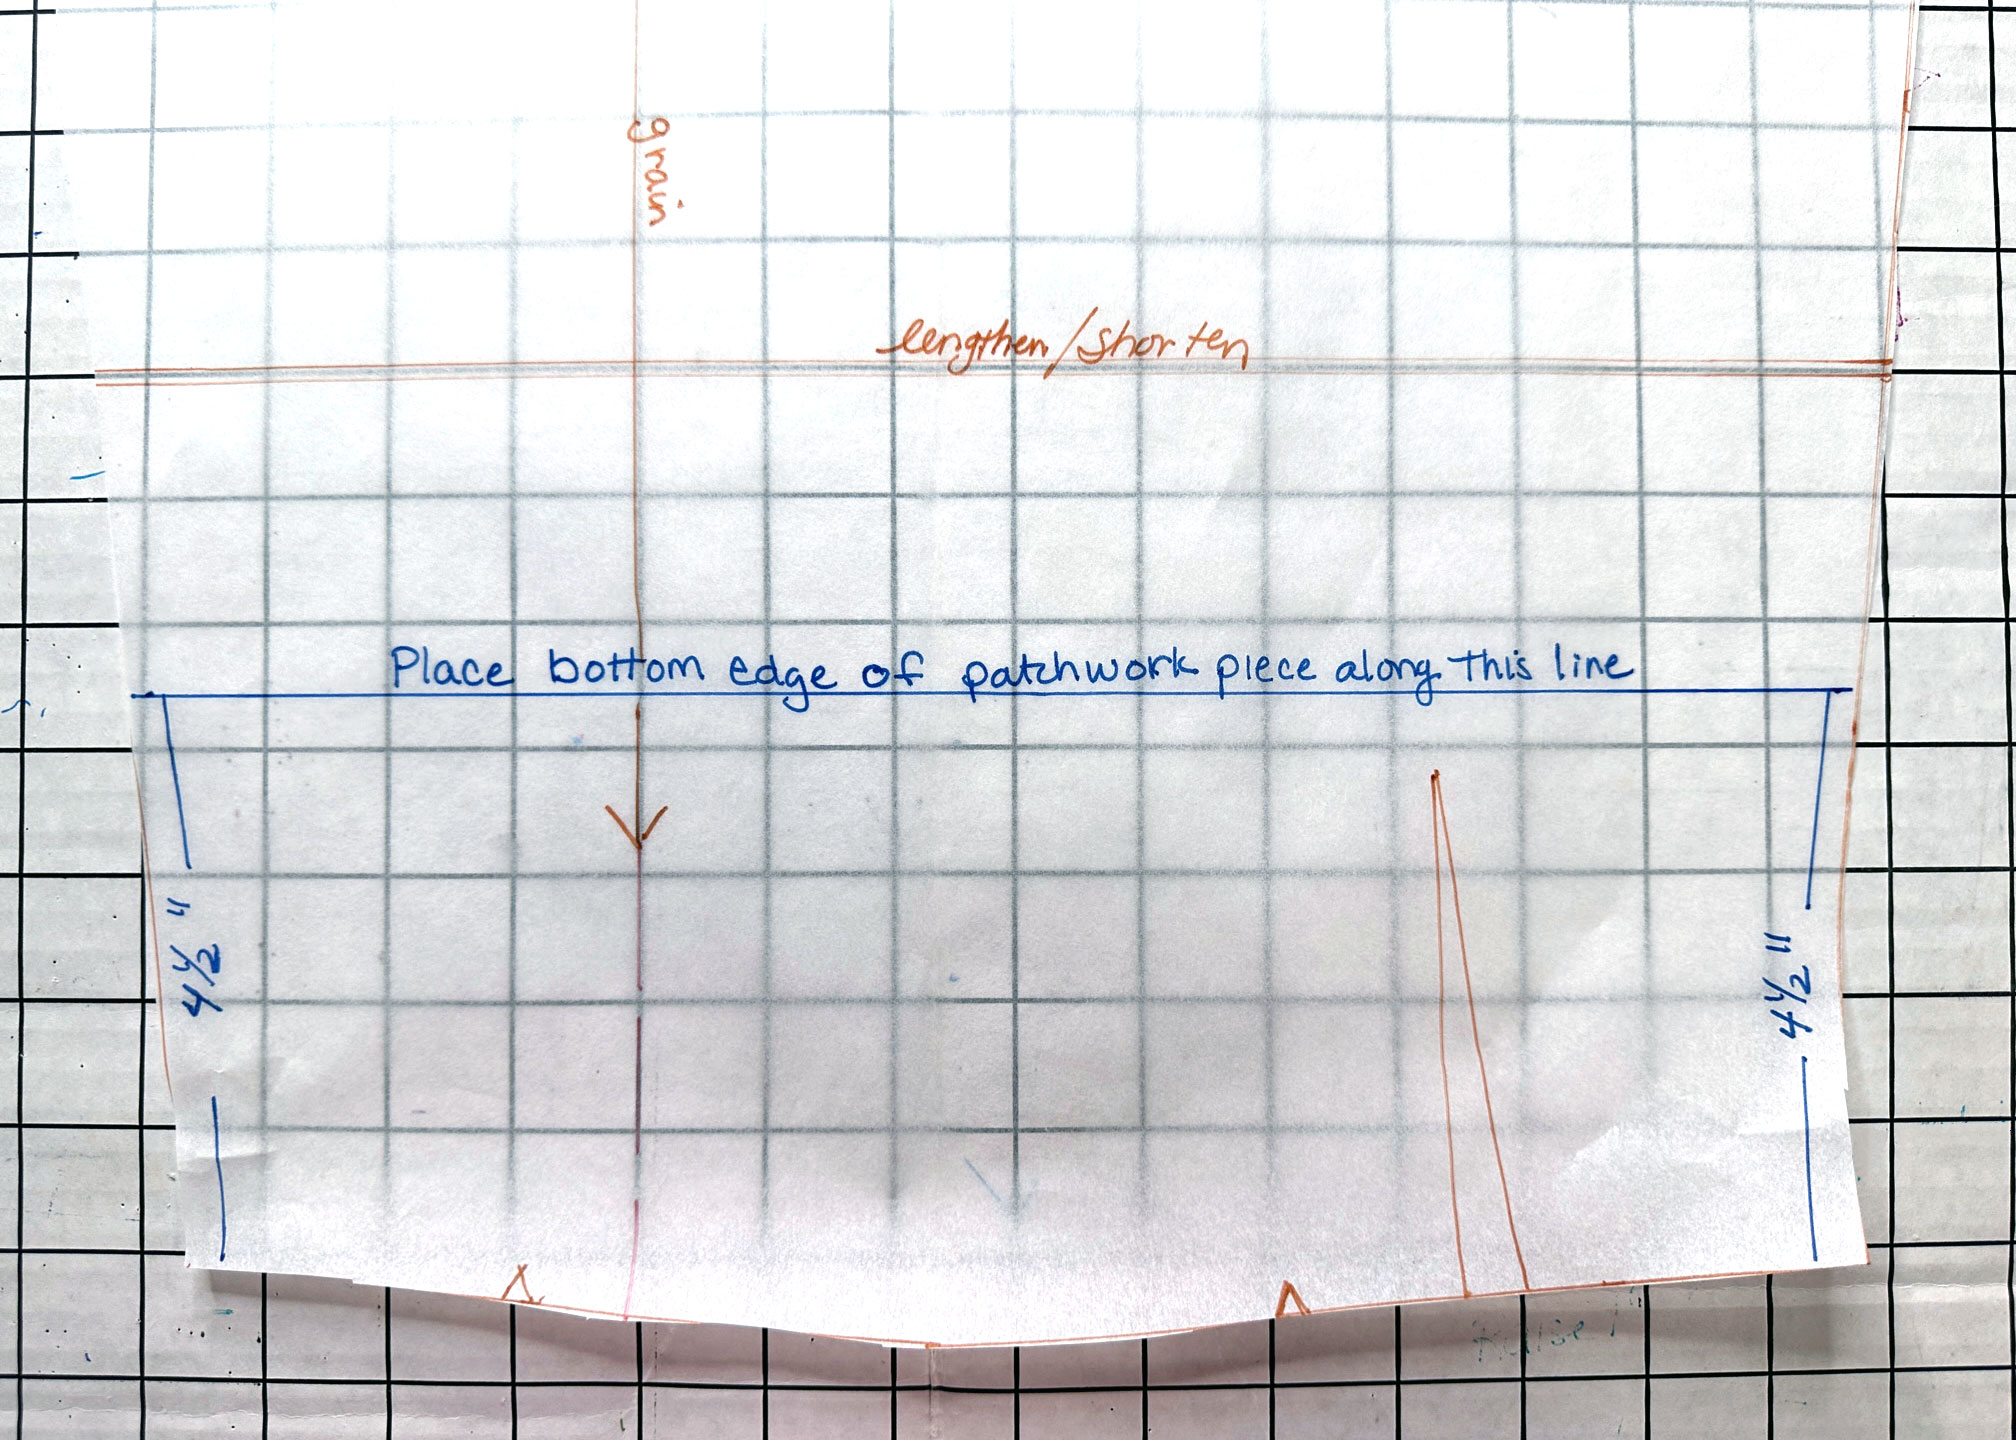 grain
lengthen/shorten
Place bottom edge of patchwork piece along this line
4 1/2"
4 1/2"